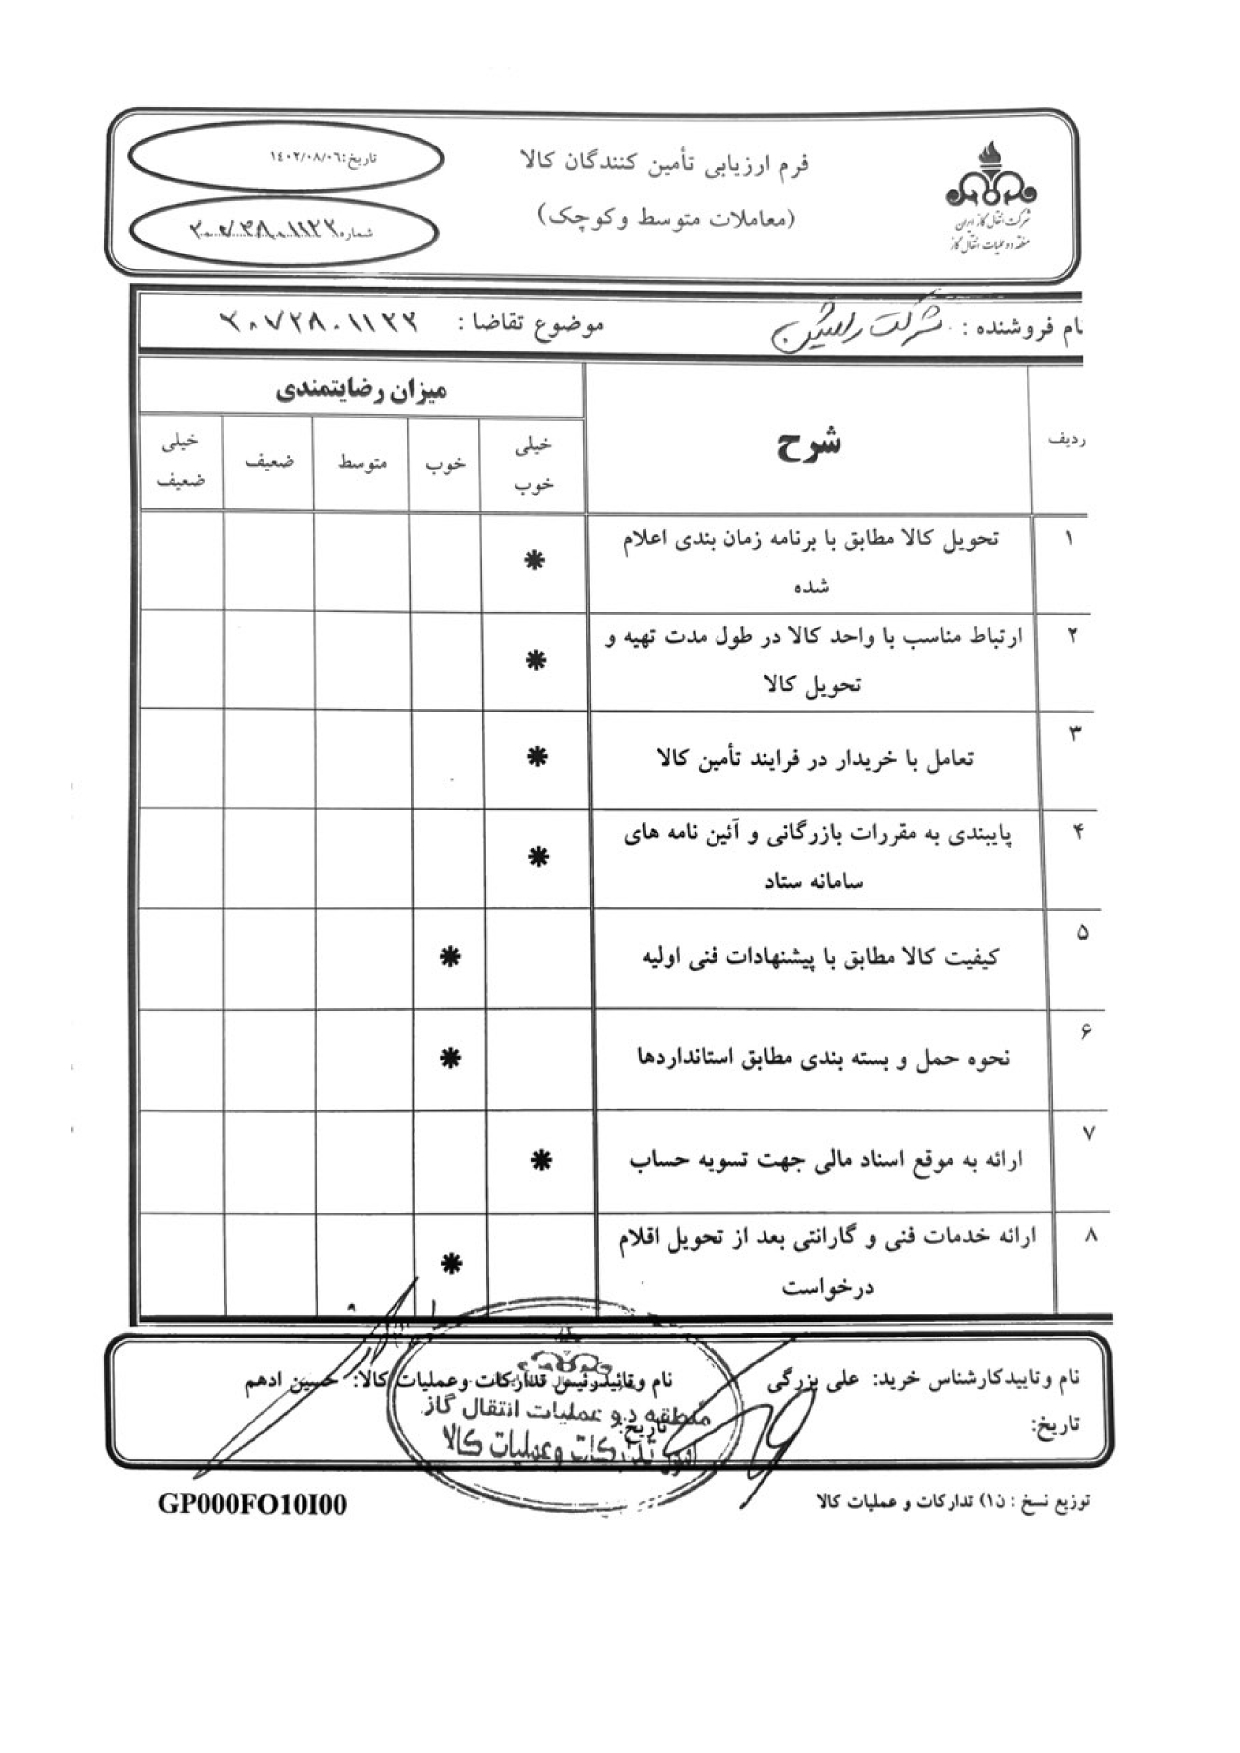 فرم ارزیابی تأمین کنندگان کالا
(معاملات متوسط وکوچک)
تاریخ:۱۴۰۲/۰۸/۰۶
شماره
شرکت انتقال گاز ایران
منطقه دو عملیات انتقال گاز
نام فروشنده : شرکت
موضوع تقاضا : ۳۰۷۲۸۰۱۱۲۲
ردیف
شرح
میزان رضایتمندی
خیلی خوب
خوب
متوسط
ضعیف
خیلی ضعیف
۱
تحویل کالا مطابق با برنامه زمان بندی اعلام
شده
*
۲
ارتباط مناسب با واحد کالا در طول مدت تهیه و
تحویل کالا
*
۳
تعامل با خریدار در فرایند تأمین کالا
*
۴
پایبندی به مقررات بازرگانی و آئین نامه های
سامانه ستاد
*
۵
کیفیت کالا مطابق با پیشنهادات فنی اولیه
*
۶
نحوه حمل و بسته بندی مطابق استانداردها
*
۷
ارائه به موقع اسناد مالی جهت تسویه حساب
*
۸
ارائه خدمات فنی و گارانتی بعد از تحویل اقلام
درخواست
*
نام وتاییدکارشناس خرید: علی بزرگی
تاریخ:
نام وتائیدرئیس تدارکات وعملیات کالا: حسین ادهم
تاریخ:
منطقه دو عملیات انتقال گاز
امور تدارکات وعملیات کالا
توزیع نسخ : ن۱) تدارکات و عملیات کالا
GP000FO10I00